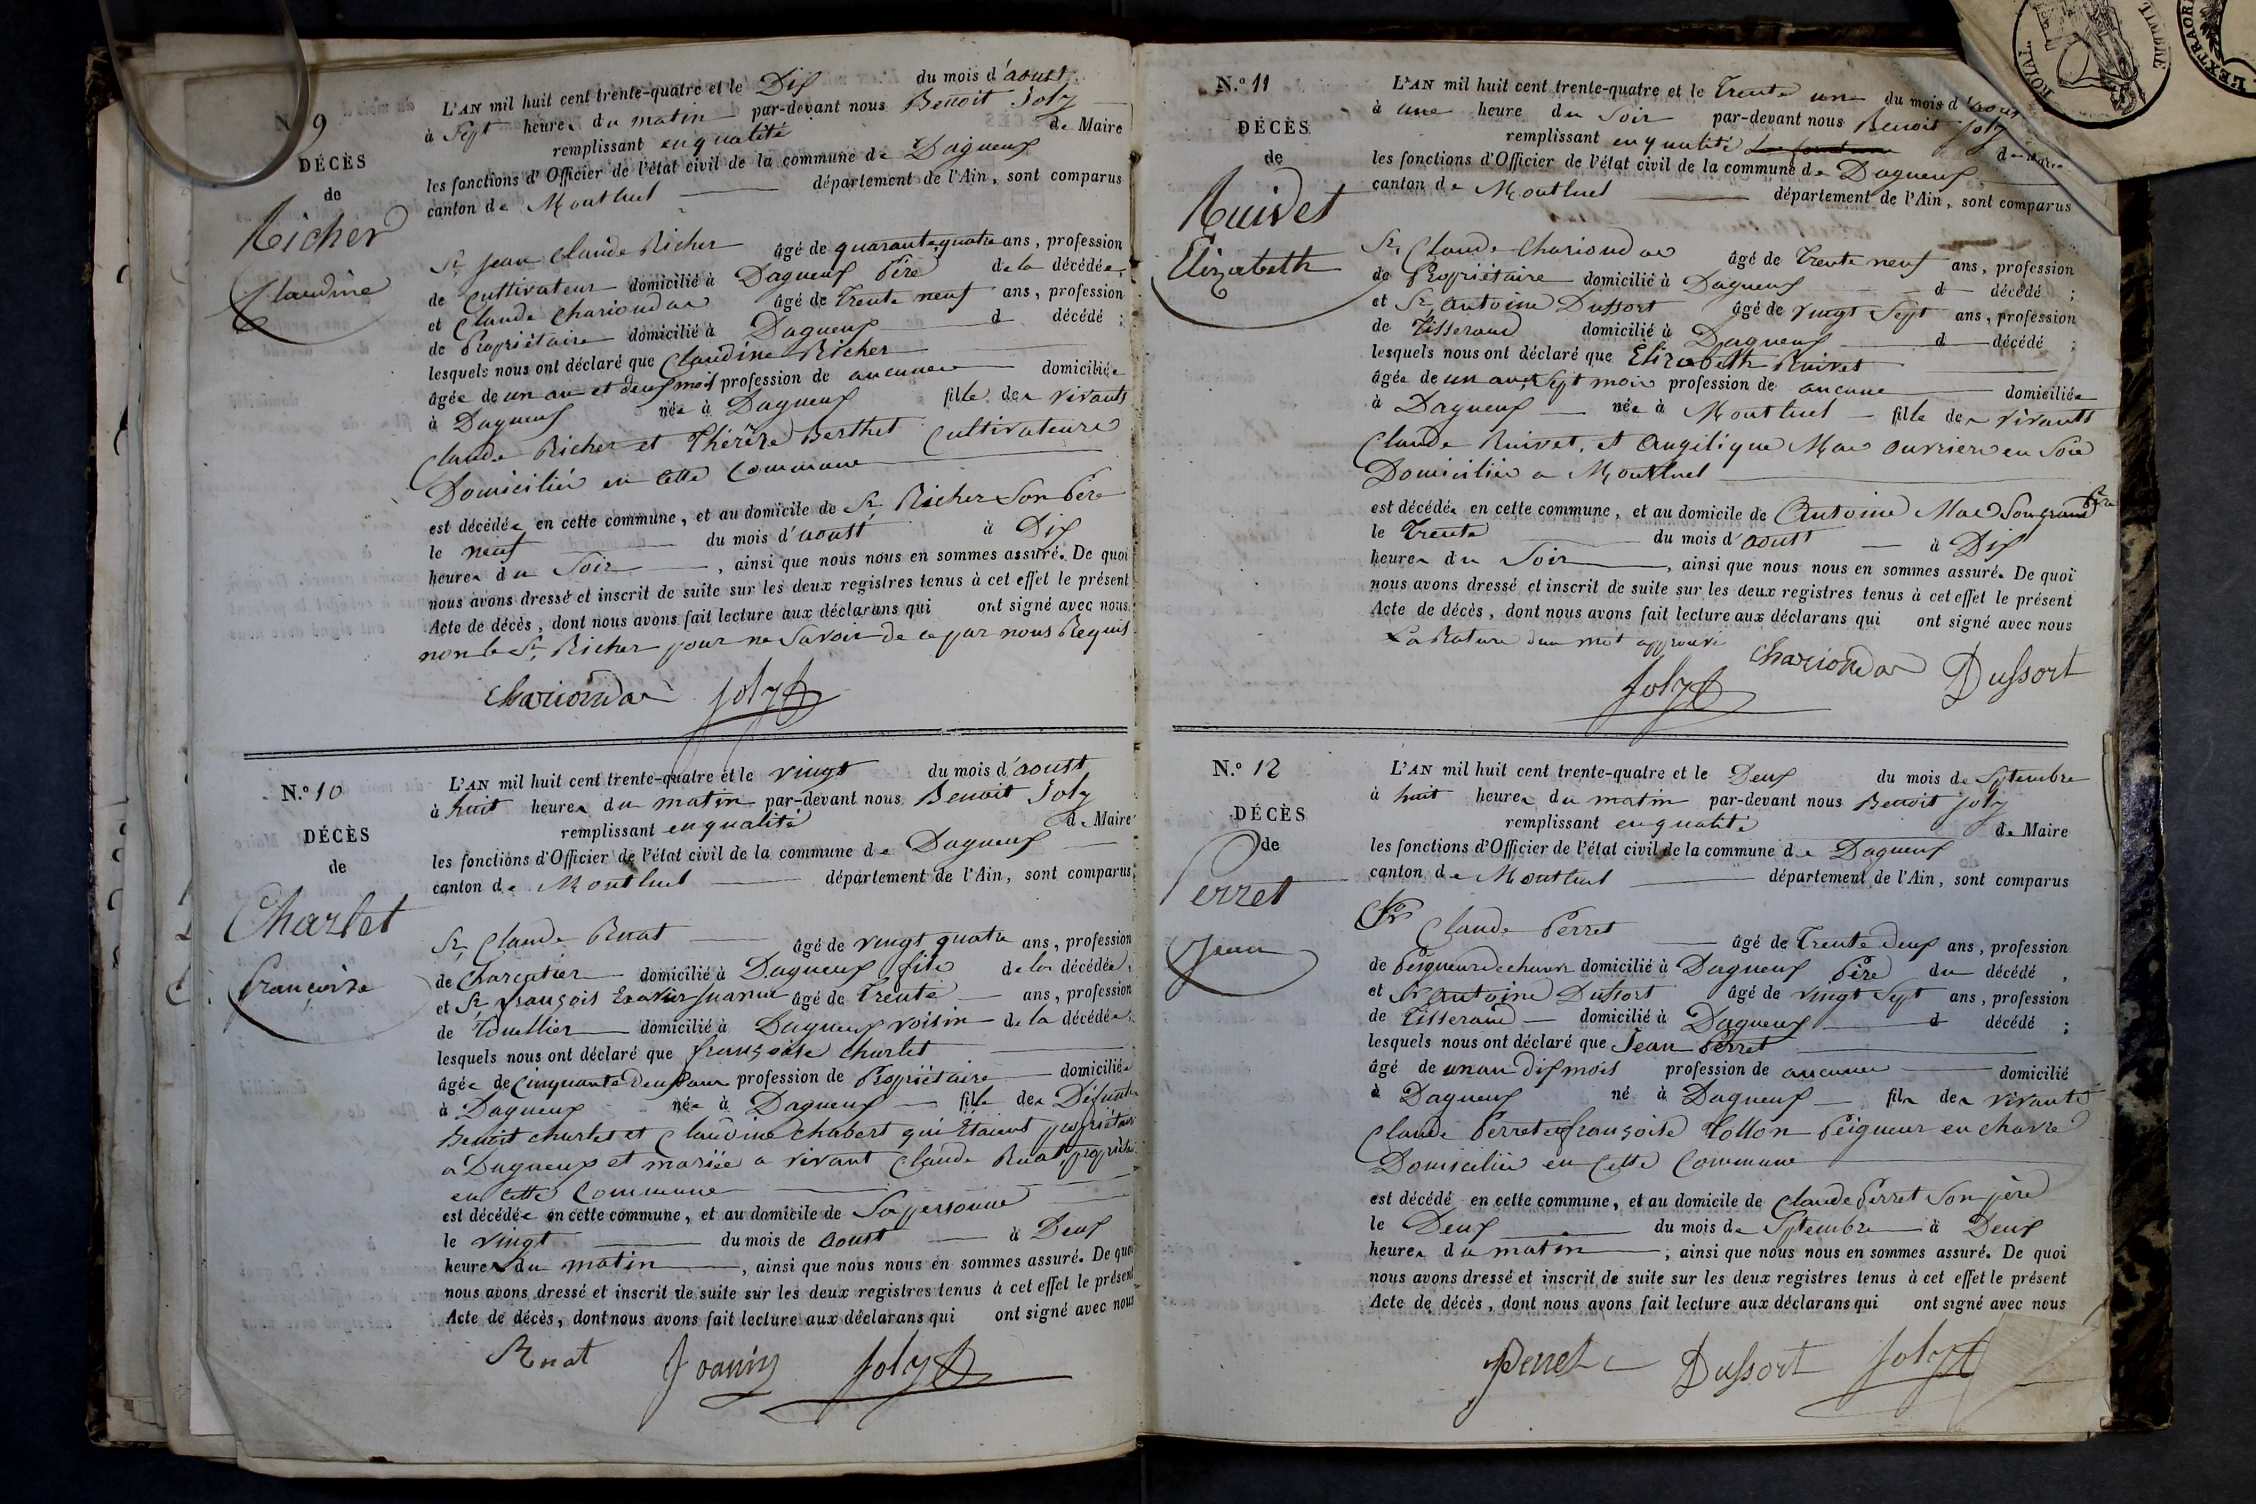 N.º 9
DÉCÈS
de
Richer
Claudine
L'AN mil huit cent trente-quatre et le Dix du mois d'aoust
à Sept heures du matin par-devant nous Benoit Joly
remplissant en qualité de Maire
les fonctions d'Officier de l'état civil de la commune de Dagneux
canton de Montluel département de l'Ain, sont comparus
Sr. Jean Claude Richer âgé de quarante quatre ans, profession
de Cultivateur domicilié à Dagneux Père de la décédée,
et Claude Chariondar âgé de Trente neuf ans, profession
de Propriétaire domicilié à Dagneux d décédé ;
lesquels nous ont déclaré que Claudine Richer
âgée de un an et deux mois profession de aucune domiciliée
à Dagneux née à Dagneux fille des vivants
Claude Richer et Thérèze Berthet Cultivateurs
Domiciliés en cette Commune
est décédée en cette commune, et au domicile de Sr. Richer Son Père
le neuf du mois d'aoust à Dix
heures du Soir , ainsi que nous nous en sommes assuré. De quoi
nous avons dressé et inscrit de suite sur les deux registres tenus à cet effet le présent
Acte de décès, dont nous avons fait lecture aux déclarans qui ont signé avec nous
non le Sr. Richer pour ne Savoir de ce par nous Requis
Chariondar Joly
N.º 10
DÉCÈS
de
Charlet
françoise
L'AN mil huit cent trente-quatre et le vingt du mois d'aoust
à huit heures du matin par-devant nous Benoit Joly
remplissant en qualité de Maire
les fonctions d'Officier de l'état civil de la commune de Dagneux
canton de Montluel département de l'Ain, sont comparus
Sr. Claude Ruat âgé de vingt quatre ans, profession
de Charcutier domicilié à Dagneux fils de la décédée,
et Sr. françois âgé de Trente ans, profession
de domicilié à Dagneux voisin de la décédée,
lesquels nous ont déclaré que françoise Charlet
âgée de Cinquante Deux ans profession de Propriétaire domiciliée
à Dagneux née à Dagneux fille des Défunts
Benoit Charlet et Claudine Chabert qui Etaient propriétaires
a Dagneux et mariée a vivant Claude Ruat
en cette Commune
est décédée en cette commune, et au domicile de Sa personne
le vingt du mois de aoust à Deux
heures du matin , ainsi que nous nous en sommes assuré. De quoi
nous avons dressé et inscrit de suite sur les deux registres tenus à cet effet le présent
Acte de décès, dont nous avons fait lecture aux déclarans qui ont signé avec nous
Ruat Joanin Joly
N.º 11
DÉCÈS
de
Ruivet
Elizabeth
L'AN mil huit cent trente-quatre et le Trente un du mois d'aoust
à une heure du Soir par-devant nous Benoit Joly
remplissant en qualité de Maire
les fonctions d'Officier de l'état civil de la commune de Dagneux
canton de Montluel département de l'Ain, sont comparus
Sr. Claude Chariondar âgé de Trente neuf ans, profession
de Propriétaire domicilié à Dagneux d décédé ;
et Sr. Antoine Dussort âgé de vingt Sept ans, profession
de Tisserand domicilié à Dagneux d décédé ;
lesquels nous ont déclaré que Elizabeth Ruivet
âgée de un an et Sept mois profession de aucune domiciliée
à Dagneux née à Montluel fille des vivants
Claude Ruivet et Angélique Mae ouvriers en Soie
Domiciliés a Montluel
est décédée en cette commune, et au domicile de Antoine Mae Son grand Père
le Trente du mois d'aoust à Dix
heures du Soir , ainsi que nous nous en sommes assuré. De quoi
nous avons dressé et inscrit de suite sur les deux registres tenus à cet effet le présent
Acte de décès, dont nous avons fait lecture aux déclarans qui ont signé avec nous
La Rature d'un mot approuvé
Chariondar Dussort
Joly
N.º 12
DÉCÈS
de
Perret
Jean
L'AN mil huit cent trente-quatre et le Deux du mois de Septembre
à huit heures du matin par-devant nous Benoit Joly
remplissant en qualité de Maire
les fonctions d'Officier de l'état civil de la commune de Dagneux
canton de Montluel département de l'Ain, sont comparus
Sr. Claude Perret âgé de Trente Deux ans, profession
de Peigneur de chanvre domicilié à Dagneux Père du décédé ,
et Sr. Antoine Dussort âgé de vingt Sept ans, profession
de Tisserand domicilié à Dagneux d décédé ;
lesquels nous ont déclaré que Jean Perret
âgé de un an dix mois profession de aucune domicilié
à Dagneux né à Dagneux fils des vivants
Claude Perret et françoise Tollon Peigneur en chavre
Domiciliés en Cette Commune
est décédé en cette commune, et au domicile de Claude Perret Son père
le Deux du mois de Septembre à Deux
heures du matin ; ainsi que nous nous en sommes assuré. De quoi
nous avons dressé et inscrit de suite sur les deux registres tenus à cet effet le présent
Acte de décès, dont nous avons fait lecture aux déclarans qui ont signé avec nous
Perret Dussort Joly
ROYAL
L'EXTRAOR